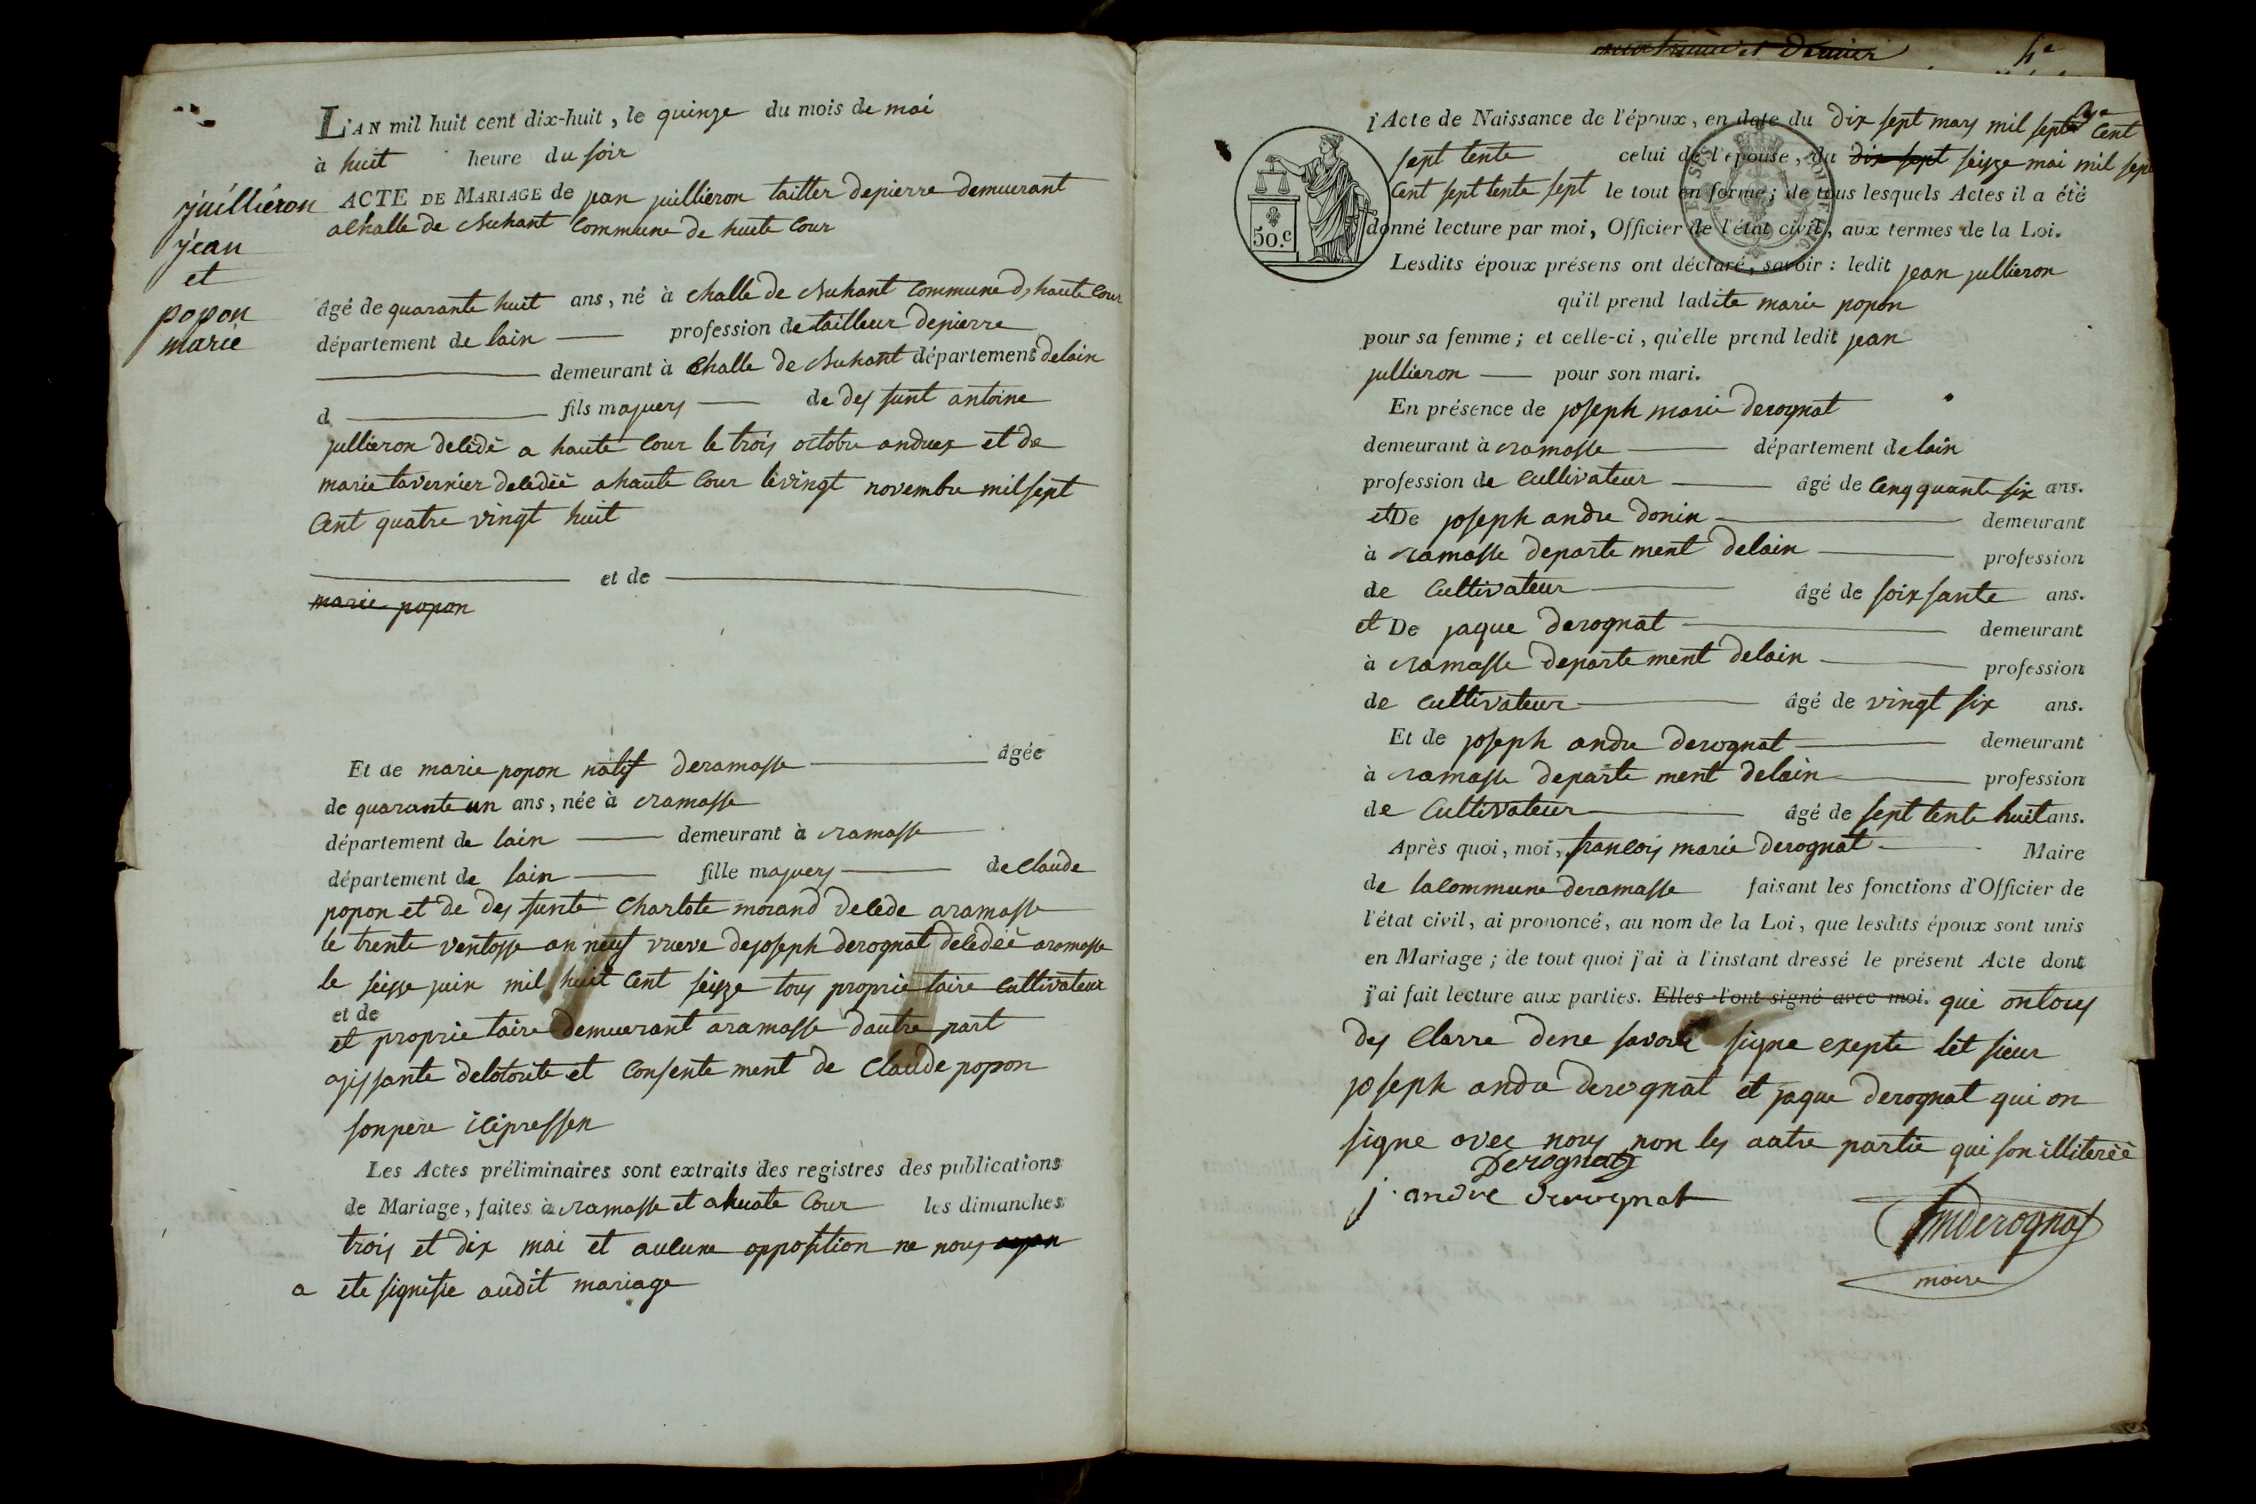 L'AN mil huit cent dix-huit, le quinze du mois de mai
à huit heure du soir
juilliéron
jean
et
popon
marie
ACTE DE MARIAGE de jean juilliéron tailler depierre demuurant
a challe de Buhant Commune de huete Cour
âgé de quarante huit ans, né à challe de Buhant Commune d haute Cour
département de lain profession de tailleur depierre
demeurant à Challe de Buhant département delain
d fils majuers de des funt antoine
jullieron delédé a haute Cour le trois octobre andues et de
marie tavernier deledéé ahaute Cour levingt novembre milsept
Cent quatre vingt huit
et de
marie popon
Et de marie popon natif deramasse âgée
de quarante un ans, née à ramasse
département de lain demeurant à ramasse
département de lain fille majuers de Claude
popon et de des funte Charlote morand delede aramasse
le trente ventosse an neuf vueve dejoseph derognat deledéé aramasse
le seizze juin mil huit Cent seizze tous proprie taire Cultivateur
et de
et proprie taire demuerant aramasse dautre part
agissante delotorite et Consente ment de Claude popon
sonpere icipressen
Les Actes préliminaires sont extraits des registres des publications
de Mariage, faites à ramasse et ahuate Cour les dimanches
trois et dix mai et aucune opposition ne nous ayan
a ete signifie audit mariage
50.c
l'Acte de Naissance de l'époux, en date du dix sept mars mil sept Cent
sept tente celui de l'épouse, du dix sept seizze mai mil sept
Cent sept tente sept le tout en forme; de tous lesquels Actes il a été
donné lecture par moi, Officier de l'état civil, aux termes de la Loi.
Lesdits époux présens ont déclaré, savoir: ledit jean jullieron
qu'il prend ladite marie popon
pour sa femme; et celle-ci, qu'elle prend ledit jean
jullieron pour son mari.
En présence de joseph marie derognat
demeurant à ramasse département delain
profession de Cultivateur âgé de Cenqquante six ans.
et De joseph andre donin demeurant
à ramasse departe ment delain profession
de Cultivateur âgé de soixsante ans.
et De jaque derognat demeurant
à ramasse departe ment delain profession
de Cultivateur âgé de vingt six ans.
Et de joseph andre derognat demeurant
à ramasse departe ment delain profession
de Cultivateur âgé de sept tente huit ans.
Après quoi, moi, francois marie derognat Maire
de lacommune deramasse faisant les fonctions d'Officier de
l'état civil, ai prononcé, au nom de la Loi, que lesdits époux sont unis
en Mariage; de tout quoi j'ai à l'instant dressé le présent Acte dont
j'ai fait lecture aux parties. Elles l'ont signé avec moi. qui ontous
des Clarre dene savoir signe exepte let sieur
joseph andre derognat et jaque derognat qui on
signe avec nous non les autre partie qui son illiteréé
Derognat
j. andre derognat
fmderognat
maire